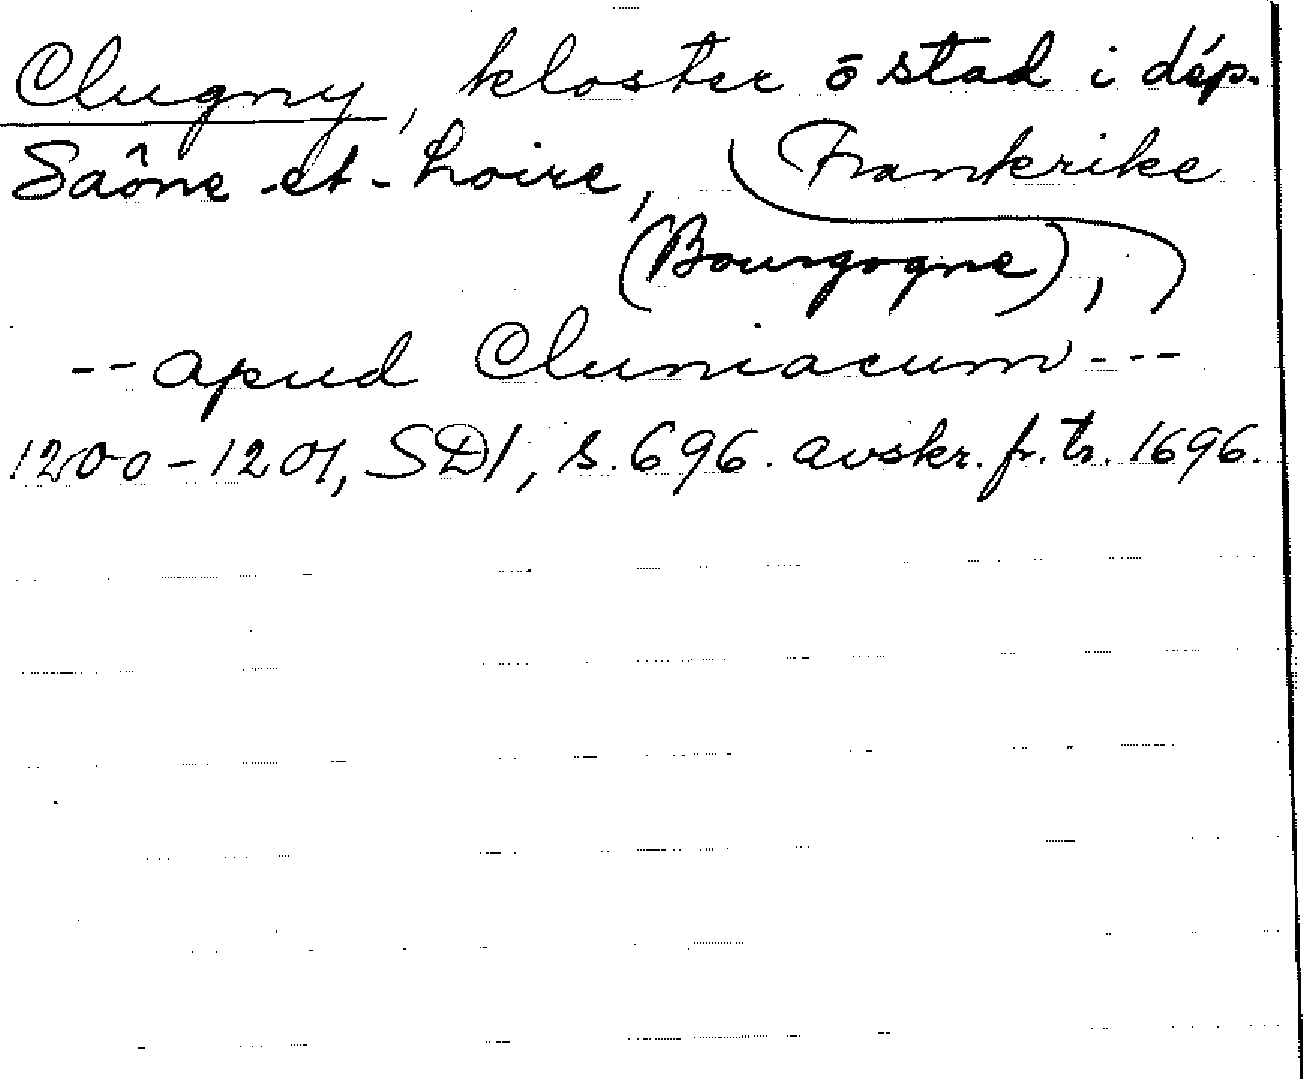 Clugny, kloster o stad i dép.
Saône-et-Loire, Frankrike
(Bourgogne),
-- apud Cluniacum ---
1200-1201, SD1, s. 696. avskr. fr. tr. 1696.